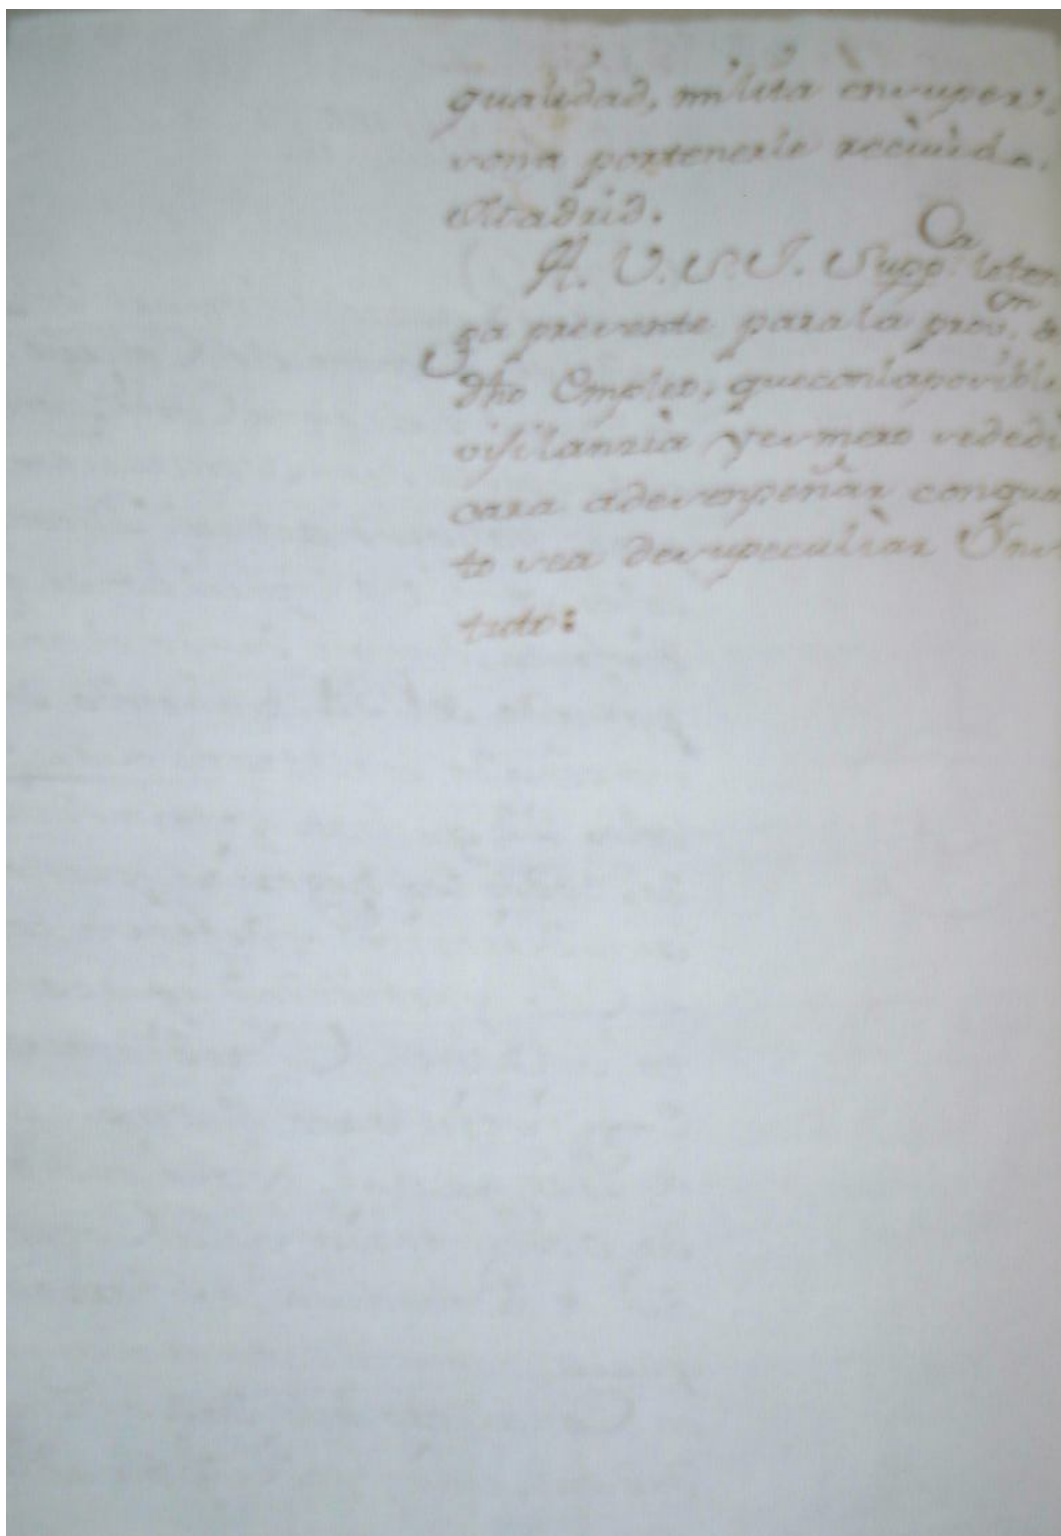 qualidad, milita en su per-
sona por tenerle recivido.
Madrid.
A. V. S. I. Supp.ca lo ten
ga presente para la prov.on de
dho Empleo, que con la posible
vigilanzia y esmero se dedi
cara a desempeñar conquan
to sea de su peculiar Ins
tuto: